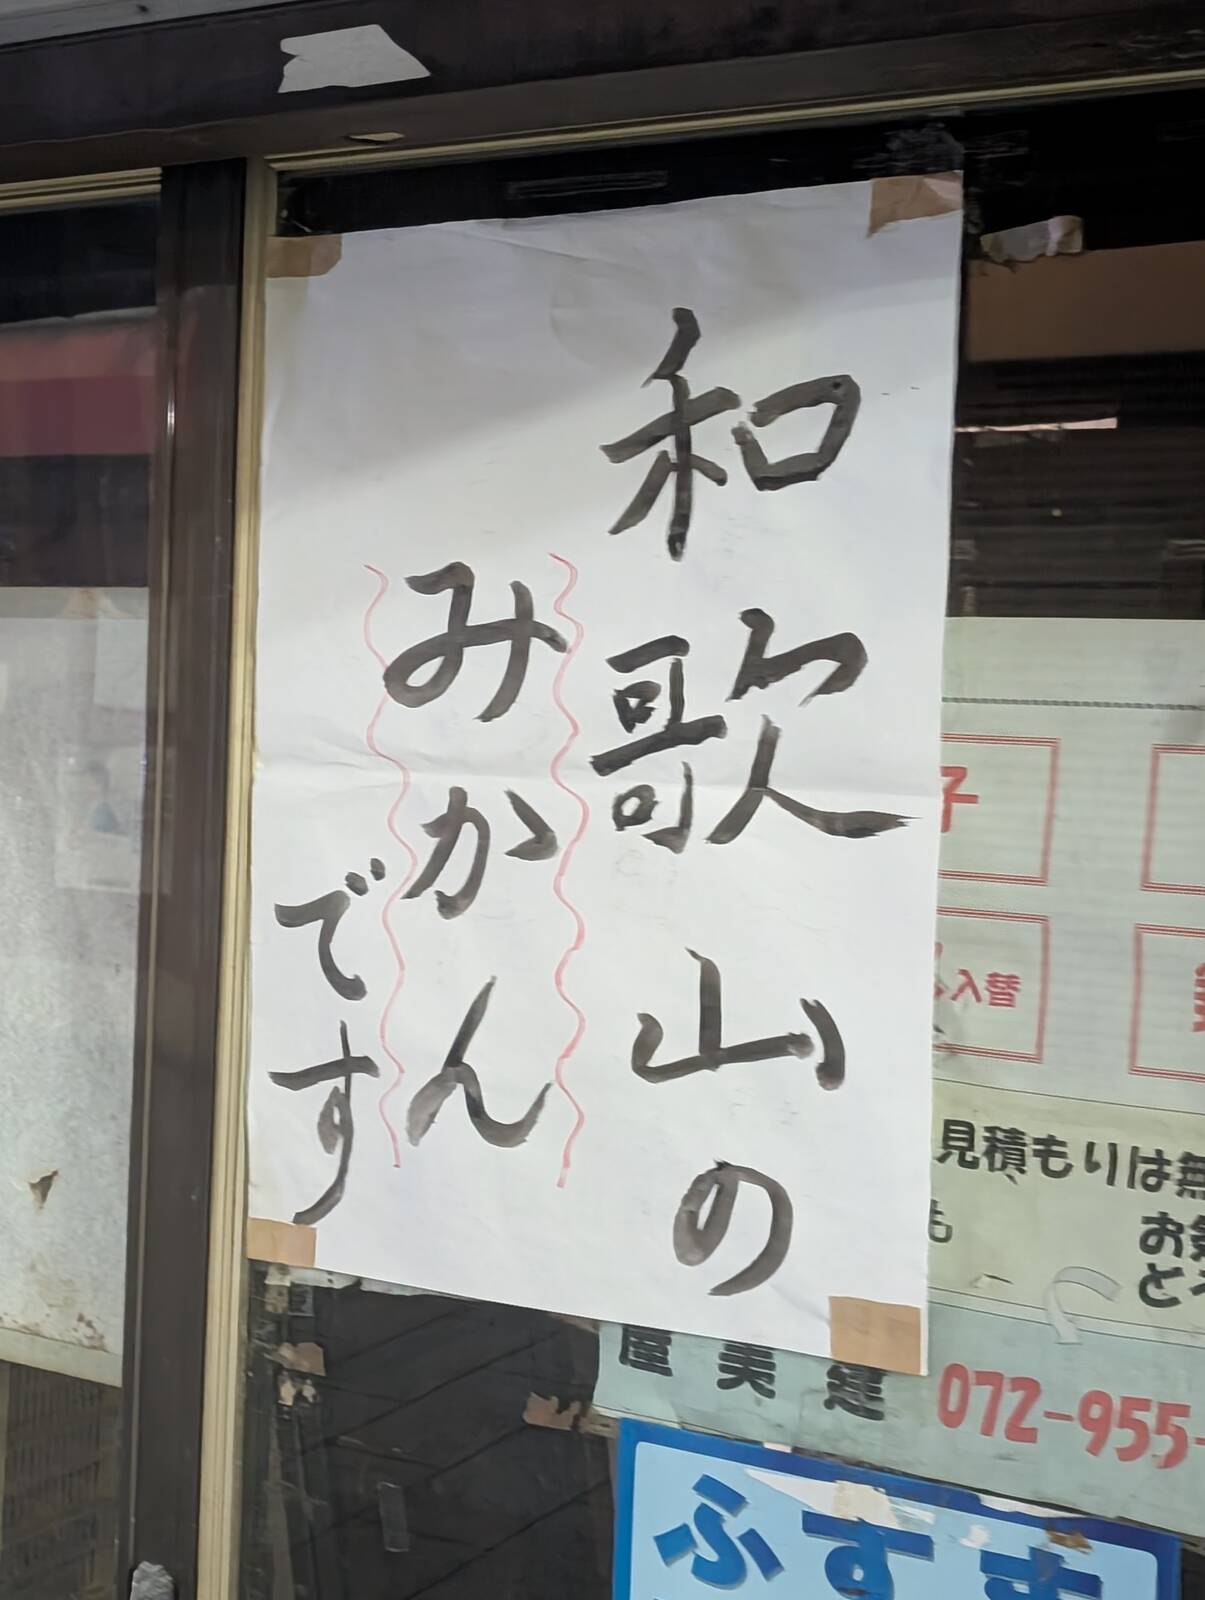 和歌山の
みかん
です
子
替え
見積もりは無
お気
も
屋美建
072-955-
ふすま